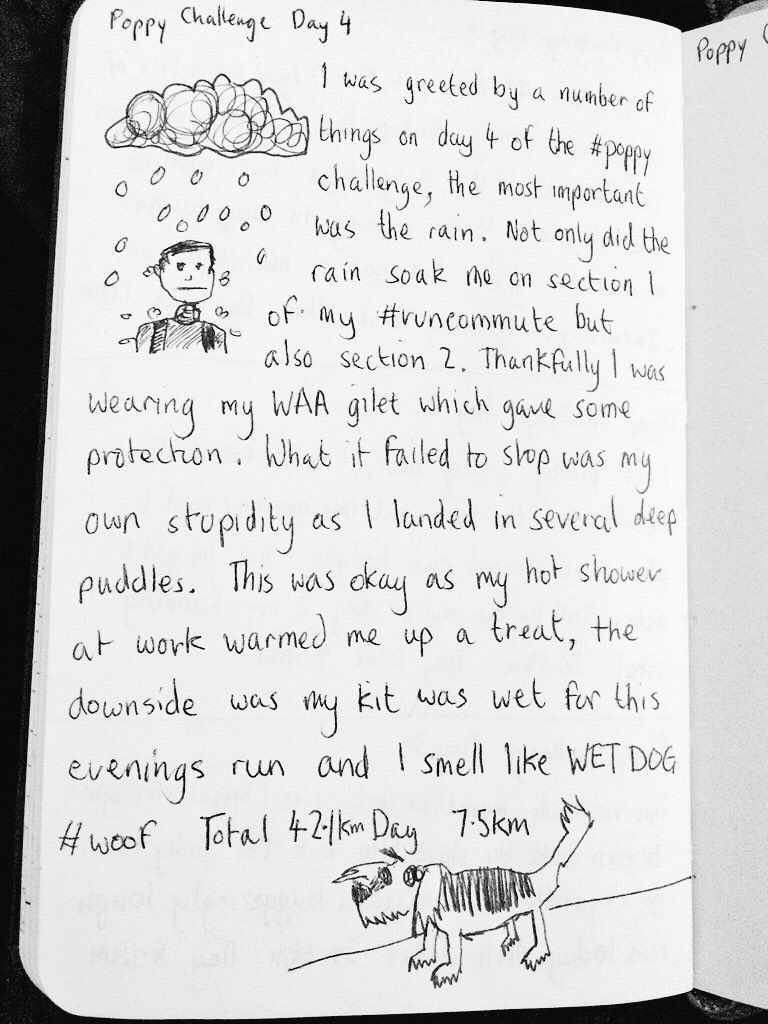 Poppy Challenge Day 4
I was greeted by a number of
things on day 4 of the #poppy
challenge, the most important
was the rain. Not only did the
rain soak me on section 1
of my #runcommute but
also section 2. Thankfully I was
wearing my WAA gilet which gave some
protection. What it failed to stop was my
own stupidity as I landed in several deep
puddles. This was okay as my hot shower
at work warmed me up a treat, the
downside was my kit was wet for this
evenings run and I smell like WET DOG
#woof Total 42.1km Day 7.5km
Poppy